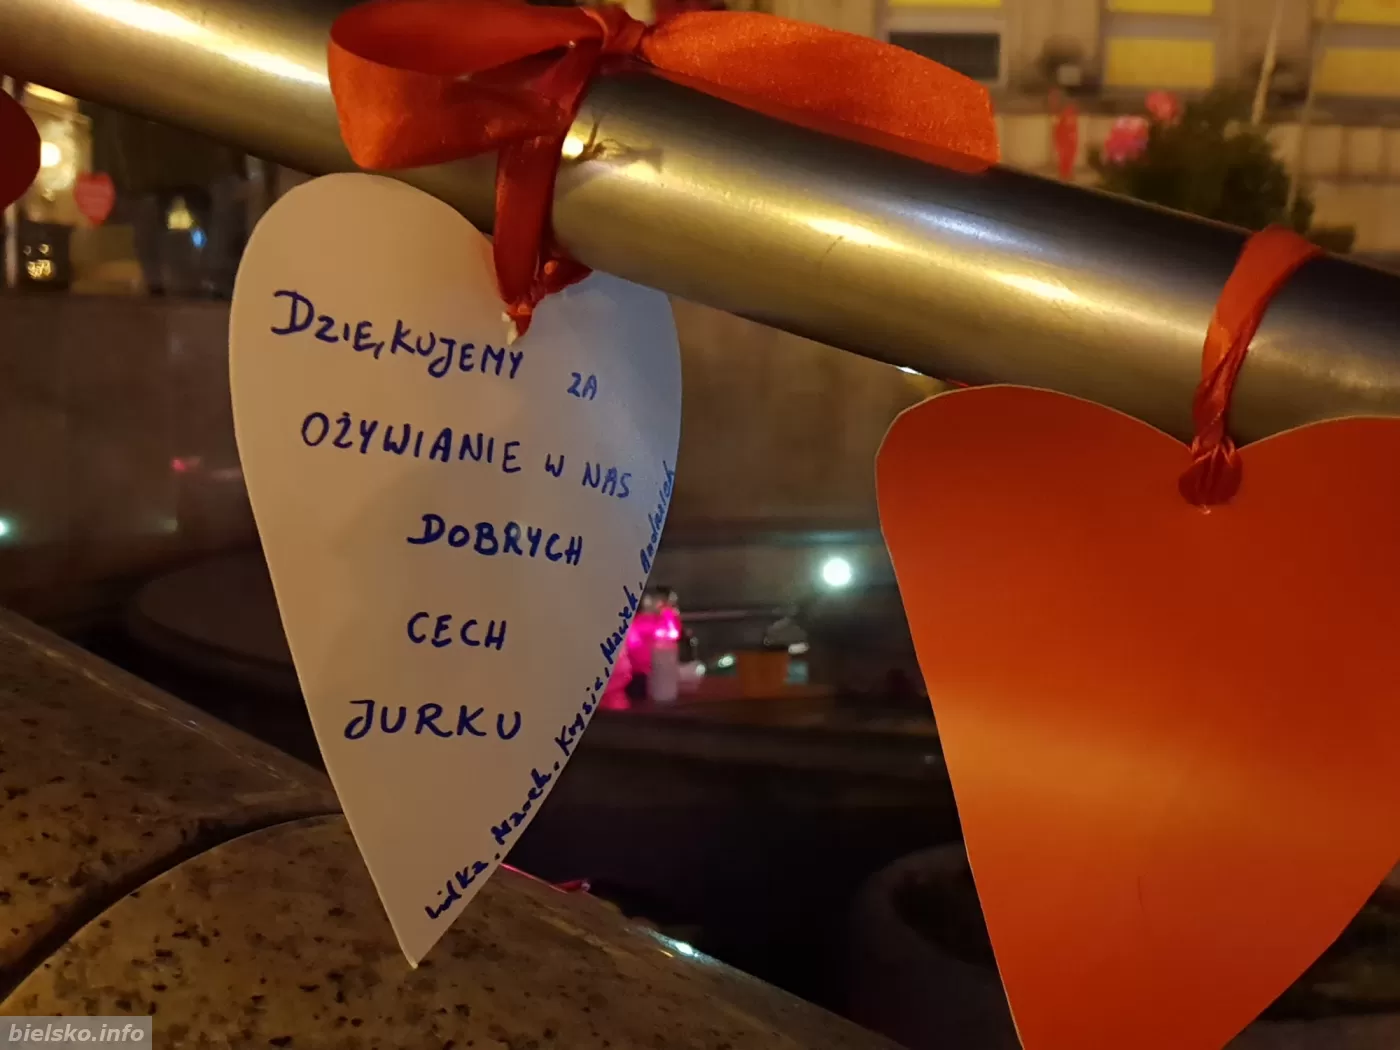 DZIĘKUJEMY ZA
OŻYWIANIE W NAS
DOBRYCH
CECH
JURKU
Lidka, Marek, Krysia, Maciek,
bielsko.info